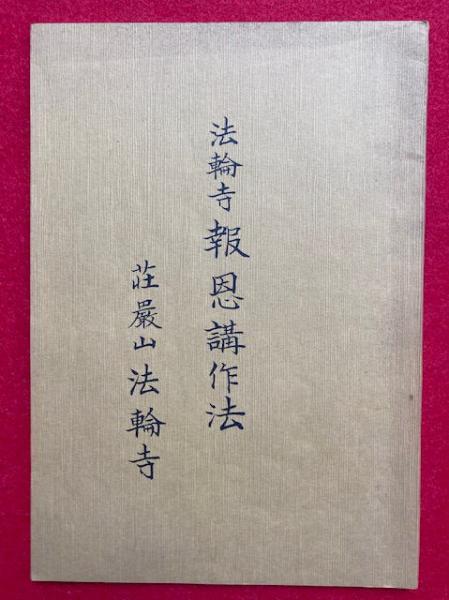 法輪寺報恩講作法
莊嚴山法輪寺